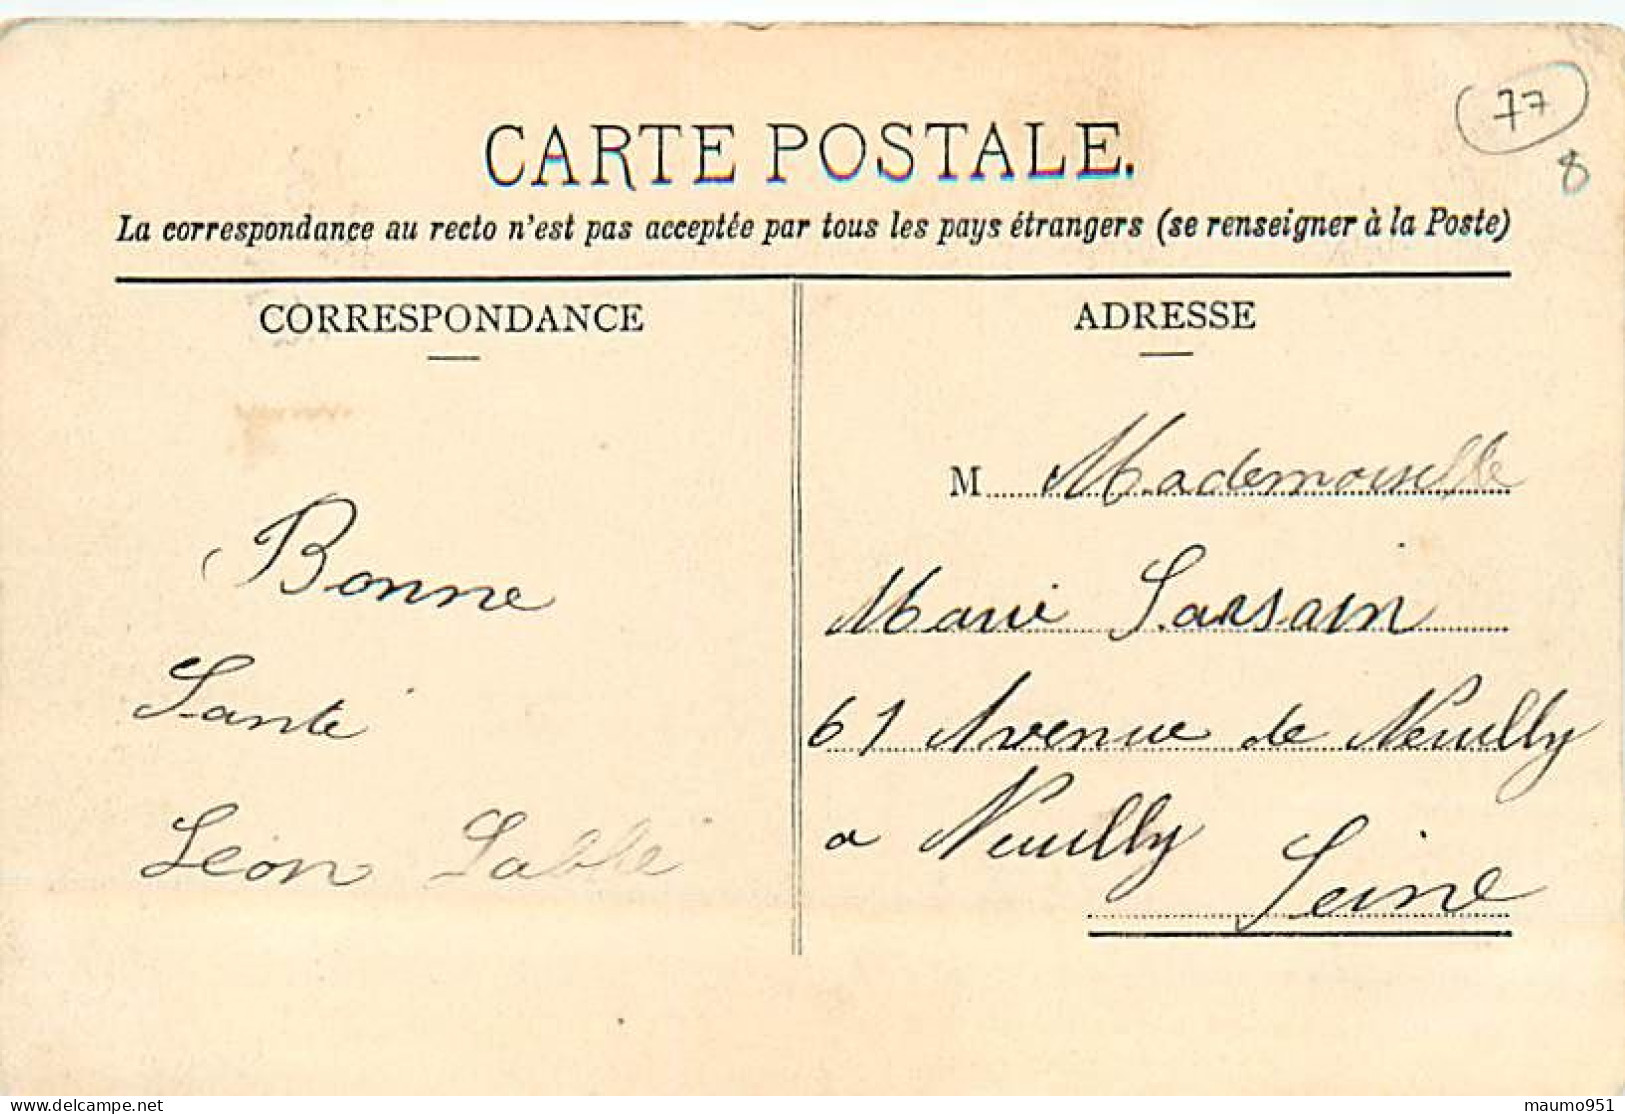 77
8
CARTE POSTALE.
La correspondance au recto n'est pas acceptée par tous les pays étrangers (se renseigner à la Poste)
CORRESPONDANCE
Bonne
Santé
Léon Lablé
ADRESSE
M Mademoiselle
Marie Sarsain
61 Avenue de Neuilly
a Neuilly
Seine
delcampe.net
maumo951